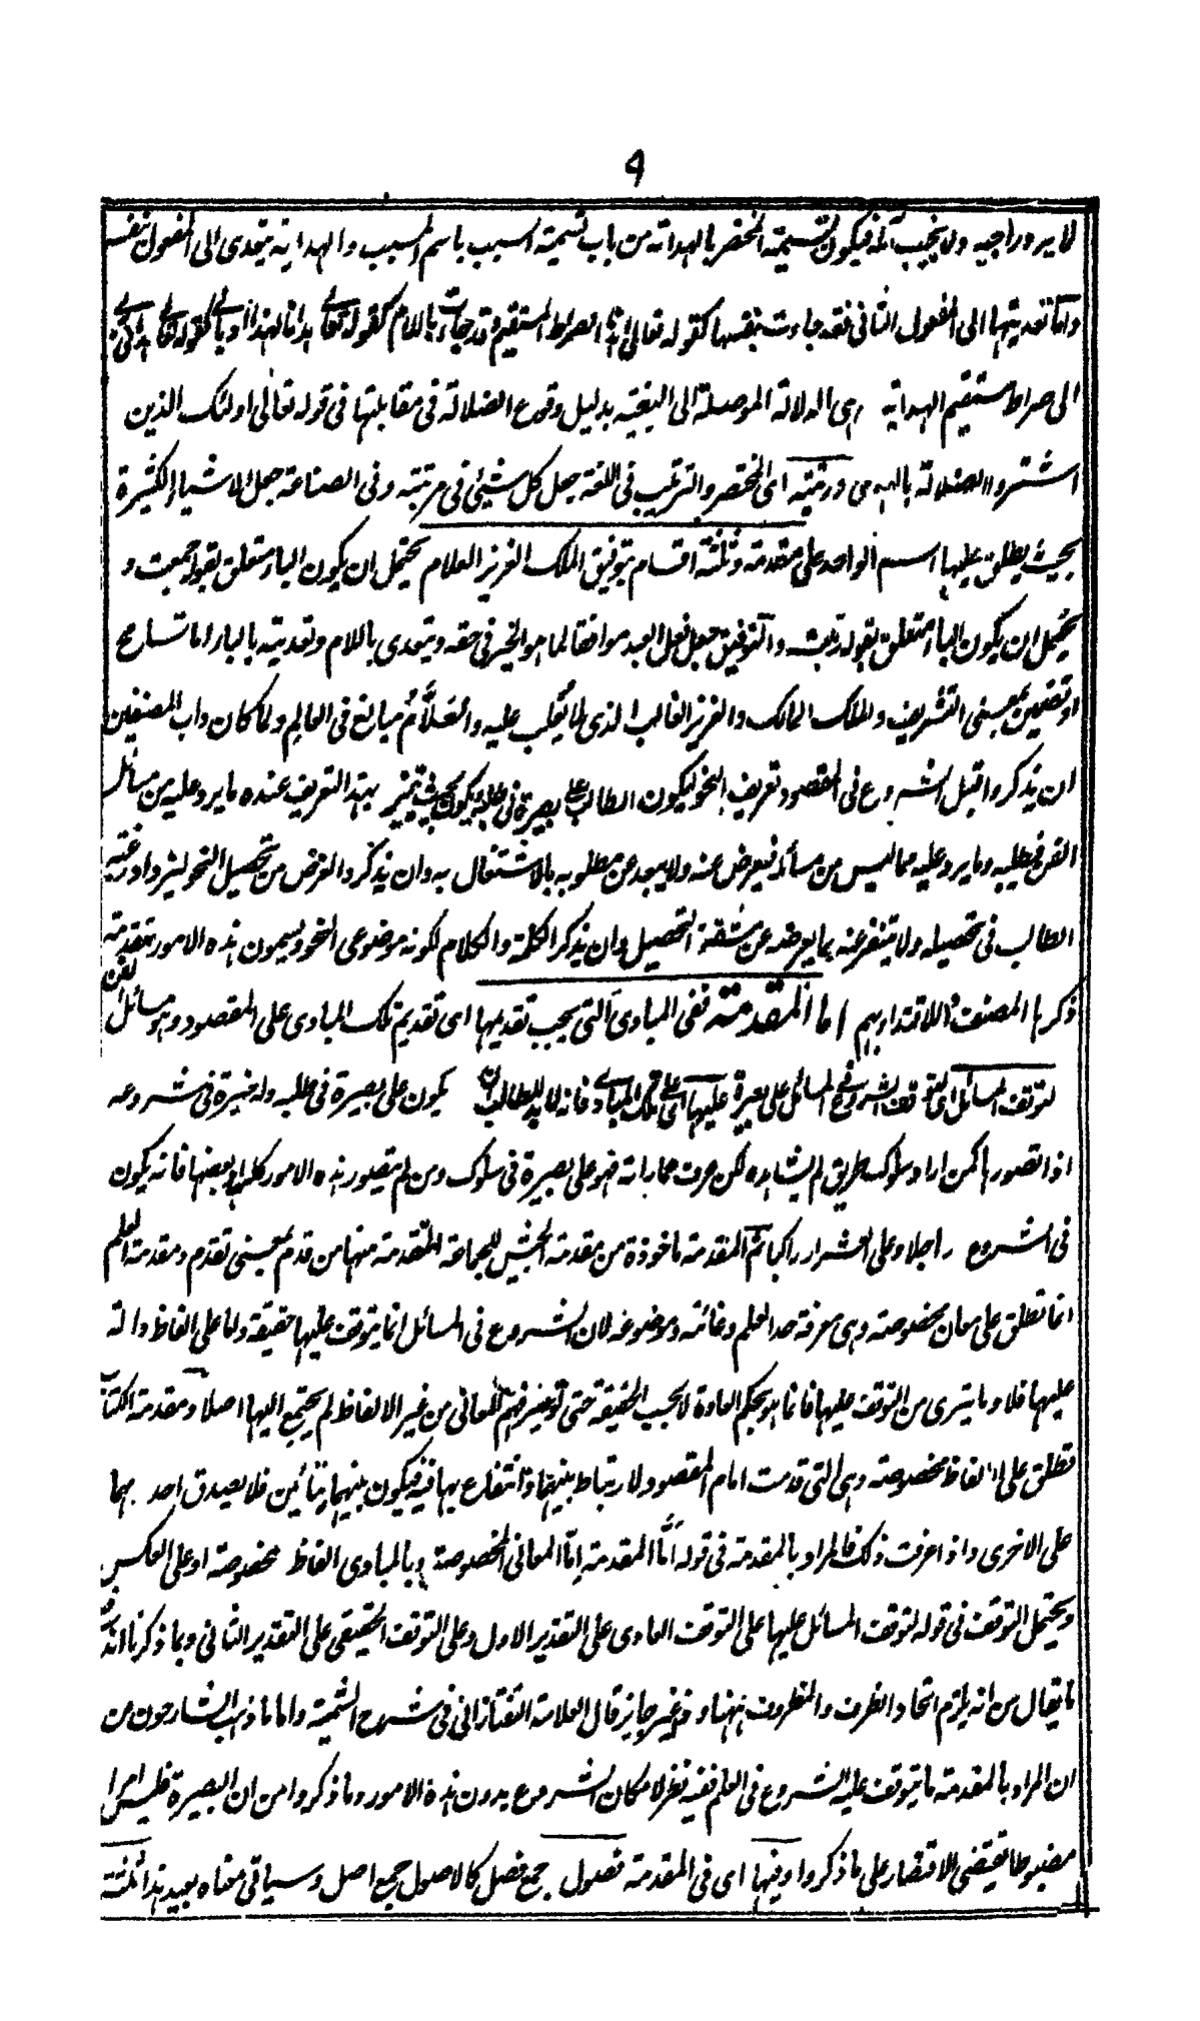 ٩
لا يرد راجيه ولا يخيب آمله فيكون تسمية المختصر بالهداية من باب تسمية السبب باسم المسبب والهداية يتعدى الى المفعول بنفسه
واما تعديتها الى المفعول الثانى فقد جاءت بنفسها كقوله تعالى اهدنا الصراط المستقيم وقد جاءت باللام كقوله تعالى هدانا لهذا او بالى كقوله تعالى هدانى
الى صراط مستقيم الهداية هى الدلالة الموصلة الى البغية بدليل وقوع الضلالة فى مقابلتها فى قوله تعالى اولئك الذين
اشتروا الضلالة بالهدى ورتبته اى المختصر والترتيب فى اللغة جعل كل شيئى فى مرتبته وفى الصناعة جعل الاشياء الكثيرة
بحيث يطلق عليها اسم الواحد على مقدمة وثلثة اقسام بتوفيق الملك العزيز العلام يحتمل ان يكون الباء متعلق بقوله جمعت و
يحتمل ان يكون الباء متعلق بقوله رتبت والتوفيق جعل فعل العبد موافقا لما هو الخير فى حقه ويتعدى باللام وتعديته بالباء اما تسامح
او تضمين بمعنى التشريف والملك المالك والعزيز الغالب الذى لا يُغلب عليه والعَلَّامُ مبالغ فى العالم ولما كان داب المصنفين
ان يذكروا قبل الشروع فى المقصود تعريف النحو ليكون الطالب على بصيرة فى طلبه ويكون بحيث يتميز بهذا التعريف عنده ما يرد عليه من مسائل
الفن فيطلبه وما يرد عليه مما ليس من مسائله فيعرض عنه ولا يبعد عن مطلوبه بالاشتغال به وان يذكروا الغرض من تحصيل النحو ليزداد رغبة
الطالب فى تحصيله ولا يتنفر عنه بما يعرضه عن مشقة التحصيل وان يذكر الكلمة والكلام لكونه موضوعى النحو ويسمون هذه الامور بمقدمة
الفن
ذكرها المصنف اللاقتداء بهم اما المقدمة ففى المبادى التى يجب تقديمها اى تقديم تلك المبادى على المقصود وهو مسائل
لتوقف المسائل اى لتوقف الشروع فى المسائل على بصيرة عليها اى على تلك المبادى فانه لابد للطالب ان يكون على بصيرة فى طلبه وله خبرة فى شروعه
اذا تصورها كمن اراد سلوك طريق لم يشاهده لكن عرف مماراته فهو على بصيرة فى سلوك ومن لم يتصور هذه الامور كلها او بعضها فانه يكون
فى الشروع راجلا وعلى العشراء راكبا ثم المقدمة ماخوذة من مقدمة الجيش للجماعة المتقدمة منها من قدم بمعنى تقدم ومقدمة العلم
انما تطلق على معان مخصوصة وهى معرفة حد العلم وغائته وموضوعه لان الشروع فى المسائل انما يتوقف عليها حقيقة ولما على الفاظ دالة
عليها فلا وما يترى من التوقف عليها فانما هو بحكم العادة لا بحسب الحقيقة حتى لو تيسر فهم المعانى من غير الالفاظ لم يحتج اليها اصلا ومقدمة الكتاب
فتطلق على الفاظ مخصوصة وهى التى قدمت امام المقصود لارتباط بينهما وانتفاع بها فيه فيكون بينهما تبائن فلا يصدق احدهما
على الاخرى واذا عرفت ذلك فالمراد بالمقدمة فى قوله امَّا المقدمة اما المعانى المخصوصة وبالمبادى الفاظ مخصوصة او على العكس
ويحتمل التوقف فى قوله لتوقف المسائل عليها على التوقف العادى على التقدير الاول وعلى التوقف الحقيقى على التقدير الثانى وبما ذكرنا اندفع
ما يقال من انه يلزم اتحاد الظرف والمظروف ههنا وهو غير جايز قال العلامة التفتازانى فى شرح الشمسية واما ما ذهب الشارحون من
ان المراد بالمقدمة ما يتوقف عليه الشروع فى العلم ففيه نظر لامكان الشروع بدون هذه الامور وما ذكروا من ان البصيرة فليس امرا
مضبوطا يقتضى الاقتصار على ما ذكروا وفيها اى فى المقدمة فصول جمع فصل كالاصول جمع اصل وسياتى معناه بعيد هذا ثلثة